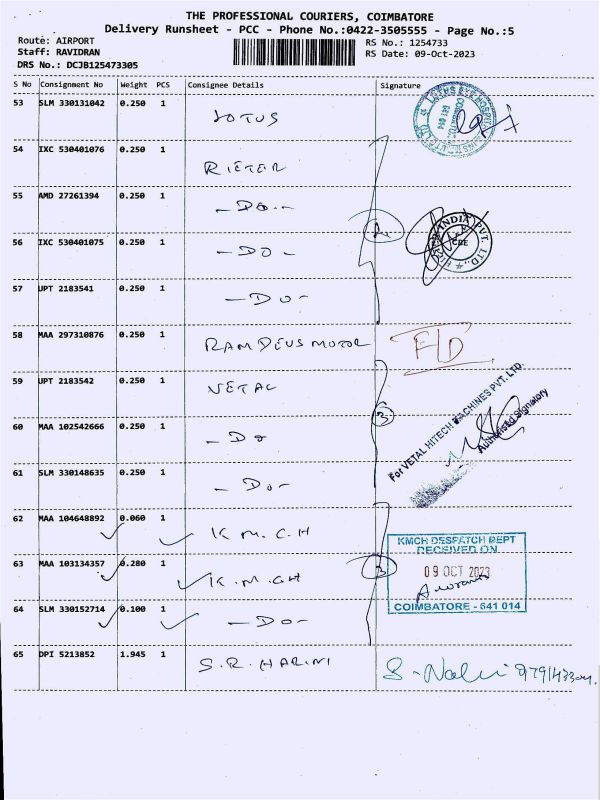 THE PROFESSIONAL COURIERS, COIMBATORE
Delivery Runsheet - PCC - Phone No.:0422-3505555 - Page No.:5
Route: AIRPORT
Staff: RAVIDRAN
DRS No.: DCJB125473305
RS No.: 1254733
RS Date: 09-Oct-2023
S No Consignment No Weight PCS Consignee Details Signature
53 SLM 330131042 0.250 1 LOTUS
54 IXC 530401076 0.250 1 RIETER
55 AMD 27261394 0.250 1 - DO -
56 IXC 530401075 0.250 1 - DO -
57 UPT 2183541 0.250 1 - DO -
58 MAA 297310876 0.250 1 RAMDEUS MOTOR F/D
59 UPT 2183542 0.250 1 VETAL
For VETAL HITECH MACHINES PVT. LTD.
Authorised Signatory
60 MAA 102542666 0.250 1 - DO
3
61 SLM 330148635 0.250 1 - DO -
62 MAA 104648892 0.060 1 K M.C.H
KMCH DESPATCH DEPT
RECEIVED ON
09 OCT 2023
COIMBATORE - 641 014
63 MAA 103134357 0.280 1 K.M.CH
3
64 SLM 330152714 0.100 1 - DO -
65 DPI 5213852 1.945 1 S.R. HARINI